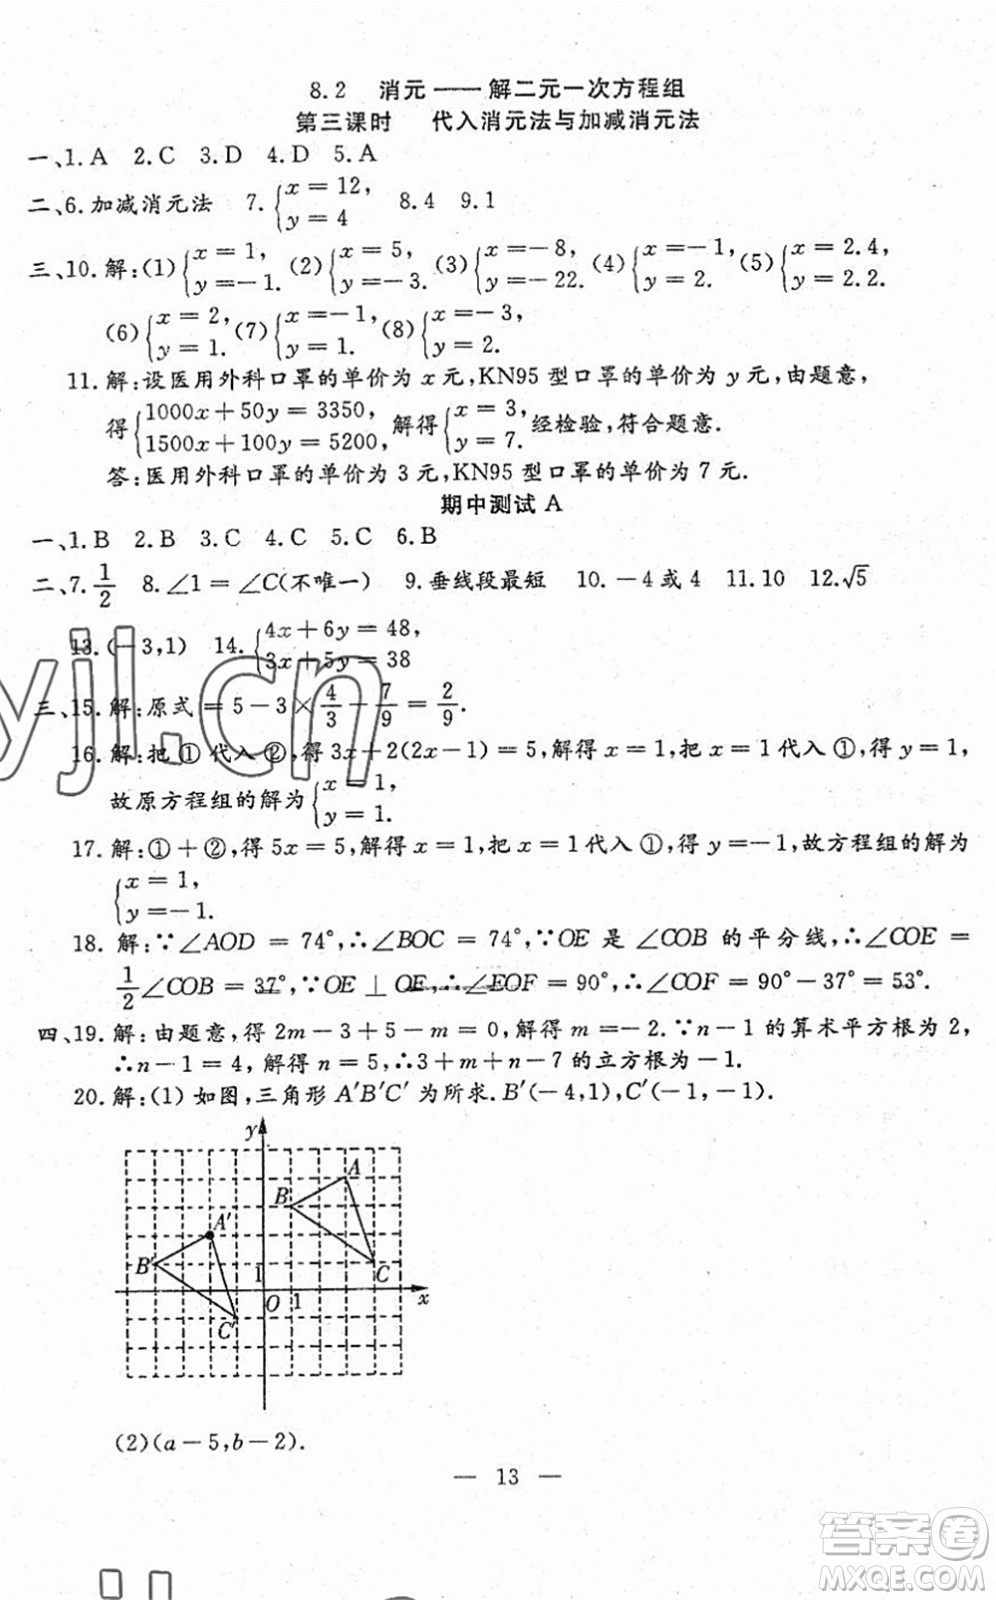 8.2 消元——解二元一次方程组
第三课时 代入消元法与加减消元法
一、1.A 2.C 3.D 4.D 5.A
二、6.加减消元法 7.{x=12, y=4 8.4 9.1
三、10.解:(1){x=1, y=-1. (2){x=5, y=-3. (3){x=-8, y=-22. (4){x=6, y=2. (5){x=2.4, y=2.2.
(6){x=2, y=1. (7){x=-1, y=1. (8){x=-3, y=2.
11.解:设医用外科口罩的单价为 x 元,KN95 型口罩的单价为 y 元,由题意,
得{1000x+50y=3350, 1500x+100y=5200, 解得{x=3, y=7. 经检验,符合题意.
答:医用外科口罩的单价为 3 元,KN95 型口罩的单价为 7 元.
期中测试 A
一、1.B 2.B 3.C 4.C 5.C 6.B
二、7.1/2 8.∠1=∠C(不唯一) 9.垂线段最短 10.-4或4 11.10 12.√5
13.(-3,1) 14.{4x+6y=48, 3x+5y=38
三、15.解:原式=5-3×4/3-7/9=2/9.
16.解:把①代入②,得3x+2(2x-1)=5,解得x=1,把x=1代入①,得y=1,
故原方程组的解为{x=1, y=1.
17.解:①+②,得5x=5,解得x=1,把x=1代入①,得y=-1,故方程组的解为
{x=1, y=-1.
18.解:∵∠AOD=74°,∴∠BOC=74°,∵OE是∠COB的平分线,∴∠COE=
1/2∠COB=37°,∵OE⊥OF,∴∠EOF=90°,∴∠COF=90°-37°=53°.
四、19.解:由题意,得2m-3+5-m=0,解得m=-2.∵n-1的算术平方根为2,
∴n-1=4,解得n=5,∴3+m+n-7的立方根为-1.
20.解:(1)如图,三角形A′B′C′为所求.B′(-4,1),C′(-1,-1).
y
A
B
A′
B′
C
1
O 1
x
C′
(2)(a-5,b-2).
— 13 —
yjl.cn
答案卷
MXQE.COM